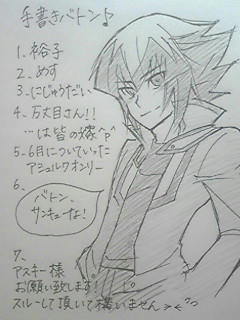 手書きバトン♪
1. 裕子
2. めす
3. にじゅうだい
4. 万丈目さん!!
…は皆の嫁^p^
5. 6月についていった
アシュルクオンリー
6.
バトン、
サンキューな!
7.
アスキー様
お願い致します!
スルーして頂いて構いません><